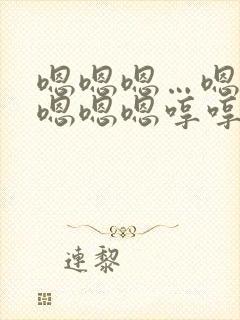 嗯嗯嗯…嗯
嗯嗯嗯哼哼
連黎